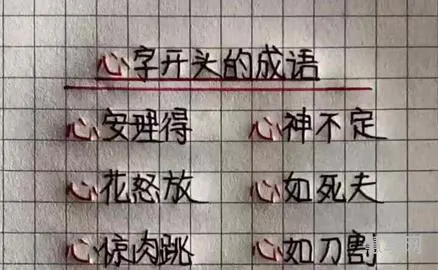 心字开头的成语
心安理得 心神不定
心花怒放 心如死夫
心惊肉跳 心如刀割